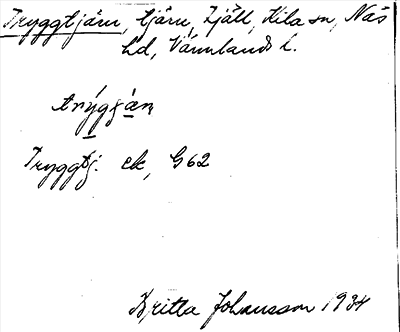 Tryggtjärn, tjärn, Fjäll, Kila sn, Näs
hd, Värmlands l.
trýgʒän
Tryggtj. ek, G62
Britta Johansson 1934